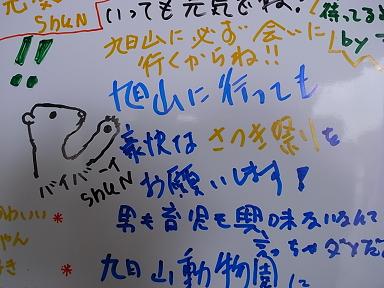 元気
shuN
いっても元気でね!
待ってる
by
旭山に必ず会いに
行くからね!!
!!
旭山に行っても
豪快な さつき祭りを
お願いします!
バイバーイ
shuN
男も育児も興味ないなんて
言っちゃダメだ
かわいい
ゃん
好き
旭山動物園に